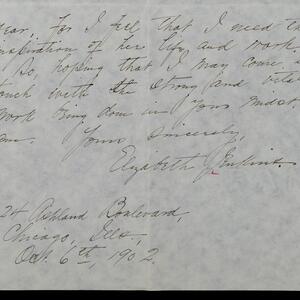 year, for I feel that I need the
inspiration of her life and work.
So, hoping that I may come in
touch with the strong and inte
work being done in your midst
am. Yours sincerely,
Elizabeth Jenkins.
24 Ashland Boulevard,
Chicago, Ills,
Oct. 6th, 1902.